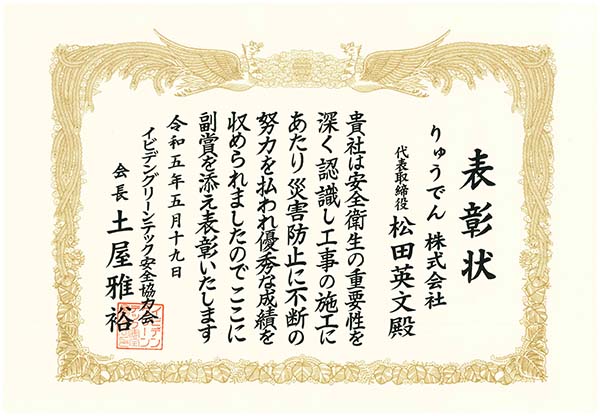 表彰状
りゅうでん 株式会社
代表取締役 松田英文殿
貴社は安全衛生の重要性を
深く認識し工事の施工に
あたり災害防止に不断の
努力を払われ優秀な成績を
収められましたのでここに
副賞を添え表彰いたします
令和五年五月十九日
イビデングリーンテック安全協力会
会長 土屋雅裕